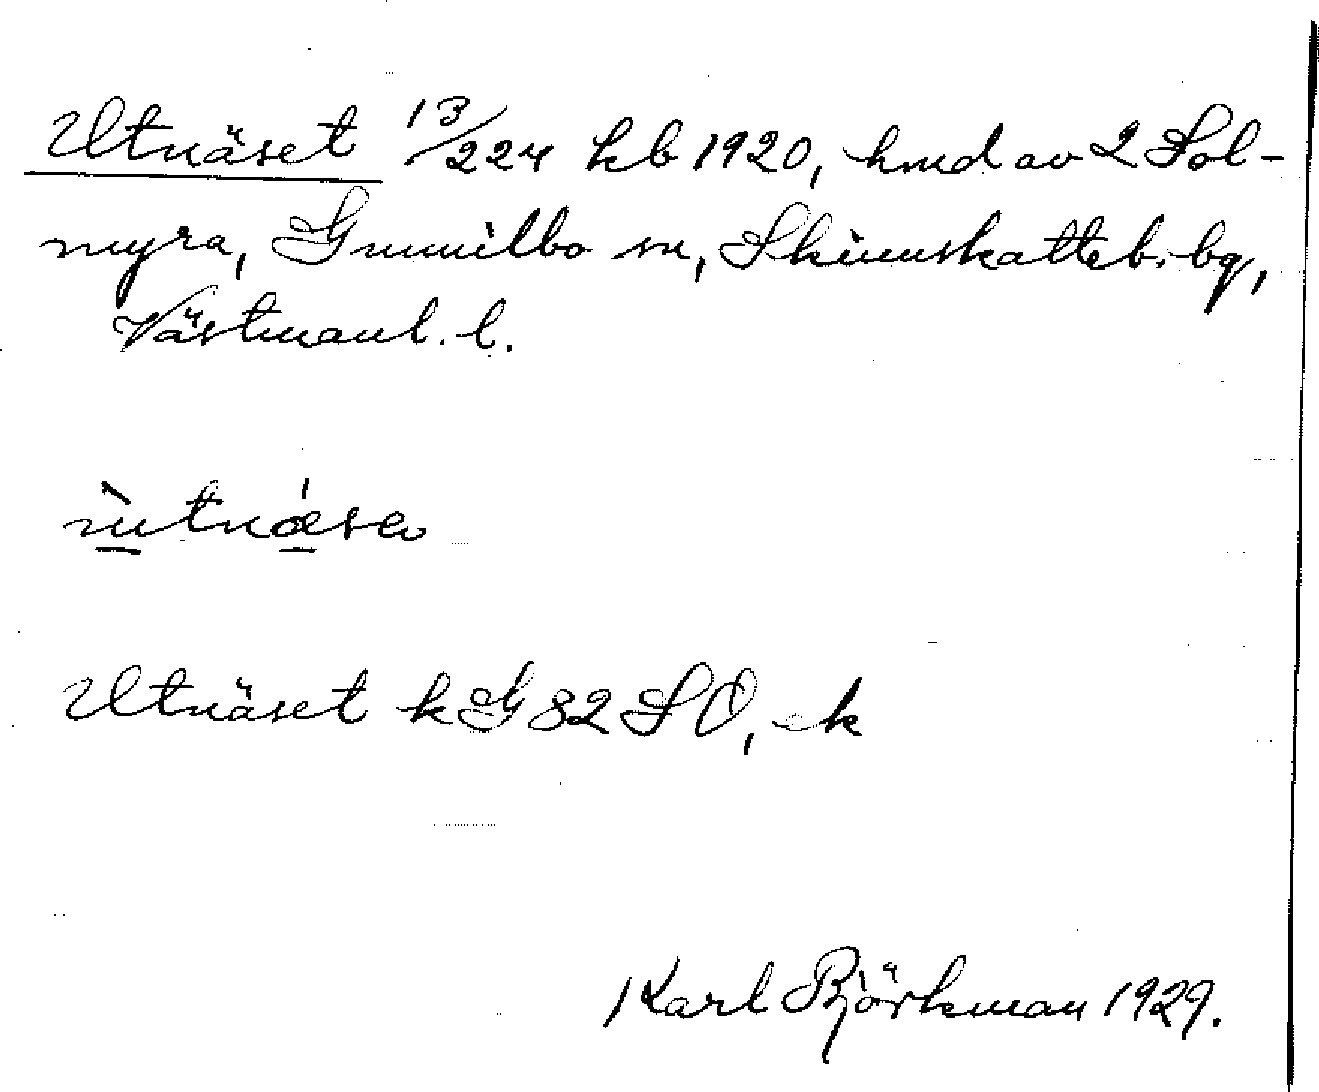 Utnäset 13/224 kb 1920, hmd av 2 Sol-
myra, Gunnilbo sn, Skinnskatteb. bg,
Västmanl. l.
ùtnǽsə
Utnäset k G 82 SO, ek
Karl Björkman 1929.